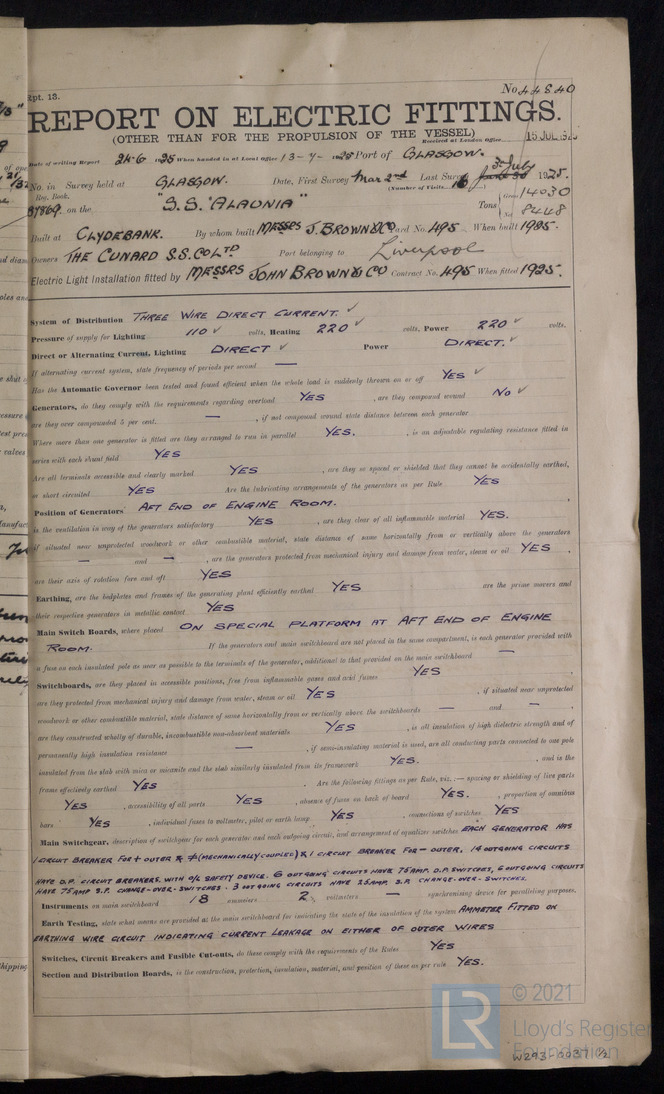 Rpt. 13.
No. 44840
REPORT ON ELECTRIC FITTINGS.
(OTHER THAN FOR THE PROPULSION OF THE VESSEL)
Received at London Office 15 JUL 1925
Date of writing Report 24-6 1925 When handed in at Local Office 13-7-1925 Port of GLASGOW.
No. in Survey held at GLASGOW. Date, First Survey Mar 2nd Last Survey 3rd July 1925.
Reg. Book. (Number of Visits 16)
87869 on the "S.S. "ALAUNIA" Tons Gross 14030
Net 8448
Built at CLYDEBANK. By whom built MESSRS J. BROWN & CO Yard No. 495 When built 1925.
Owners THE CUNARD S.S. CO LTD Port belonging to Liverpool
Electric Light Installation fitted by MESSRS JOHN BROWN & CO Contract No. 495 When fitted 1925.
System of Distribution THREE WIRE DIRECT CURRENT. ✓
Pressure of supply for Lighting 110 ✓ volts, Heating 220 ✓ volts, Power 220 ✓ volts.
Direct or Alternating Current, Lighting DIRECT ✓ Power DIRECT. ✓
If alternating current system, state frequency of periods per second —
Has the Automatic Governor been tested and found efficient when the whole load is suddenly thrown on or off YES ✓
Generators, do they comply with the requirements regarding overload YES , are they compound wound NO ✓
are they over compounded 5 per cent. — , if not compound wound state distance between each generator
Where more than one generator is fitted are they arranged to run in parallel YES. , is an adjustable regulating resistance fitted in
series with each shunt field YES
Are all terminals accessible and clearly marked YES , are they so spaced or shielded that they cannot be accidentally earthed,
or short circuited YES Are the lubricating arrangements of the generators as per Rule YES
Position of Generators AFT END OF ENGINE ROOM.
is the ventilation in way of the generators satisfactory YES , are they clear of all inflammable material YES.
if situated near unprotected woodwork or other combustible material, state distance of same horizontally from or vertically above the generators
— and — , are the generators protected from mechanical injury and damage from water, steam or oil YES ,
are their axis of rotation fore and aft YES
Earthing, are the bedplates and frames of the generating plant efficiently earthed YES are the prime movers and
their respective generators in metallic contact YES
Main Switch Boards, where placed ON SPECIAL PLATFORM AT AFT END OF ENGINE
ROOM. If the generators and main switchboard are not placed in the same compartment, is each generator provided with
a fuse on each insulated pole as near as possible to the terminals of the generator, additional to that provided on the main switchboard —
Switchboards, are they placed in accessible positions, free from inflammable gases and acid fumes YES ,
are they protected from mechanical injury and damage from water, steam or oil YES , if situated near unprotected
woodwork or other combustible material, state distance of same horizontally from or vertically above the switchboards — and — ,
are they constructed wholly of durable, incombustible non-absorbent materials YES , is all insulation of high dielectric strength and of
permanently high insulation resistance — , if semi-insulating material is used, are all conducting parts connected to one pole
insulated from the slab with mica or micanite and the slab similarly insulated from its framework YES. , and is the
frame effectively earthed YES . Are the following fittings as per Rule, viz.:— spacing or shielding of live parts
YES , accessibility of all parts YES , absence of fuses on back of board YES. , proportion of omnibus
bars YES , individual fuses to voltmeter, pilot or earth lamp YES , connections of switches YES
Main Switchgear, description of switchgear for each generator and each outgoing circuit, and arrangement of equalizer switches EACH GENERATOR HAS
1 CIRCUIT BREAKER FOR + OUTER & ≠ (MECHANICALLY COUPLED) & 1 CIRCUIT BREAKER FOR – OUTER. 14 OUTGOING CIRCUITS
HAVE D.P. CIRCUIT BREAKERS, WITH O/L SAFETY DEVICE. 6 OUTGOING CIRCUITS HAVE 75 AMP. D.P. SWITCHES, 6 OUTGOING CIRCUITS
HAVE 75 AMP S.P. CHANGE-OVER-SWITCHES. 3 OUTGOING CIRCUITS HAVE 25 AMP. S.P. CHANGE-OVER-SWITCHES.
Instruments on main switchboard 18 ammeters 2 voltmeters — synchronising device for paralleling purposes.
Earth Testing, state what means are provided at the main switchboard for indicating the state of the insulation of the system AMMETER FITTED ON
EARTHING WIRE CIRCUIT INDICATING CURRENT LEAKAGE ON EITHER OF OUTER WIRES
Switches, Circuit Breakers and Fusible Cut-outs, do these comply with the requirements of the Rules YES
Section and Distribution Boards, is the construction, protection, insulation, material, and position of these as per rule YES.
LR © 2021
Lloyd's Register
Foundation
W293-0037 1/2